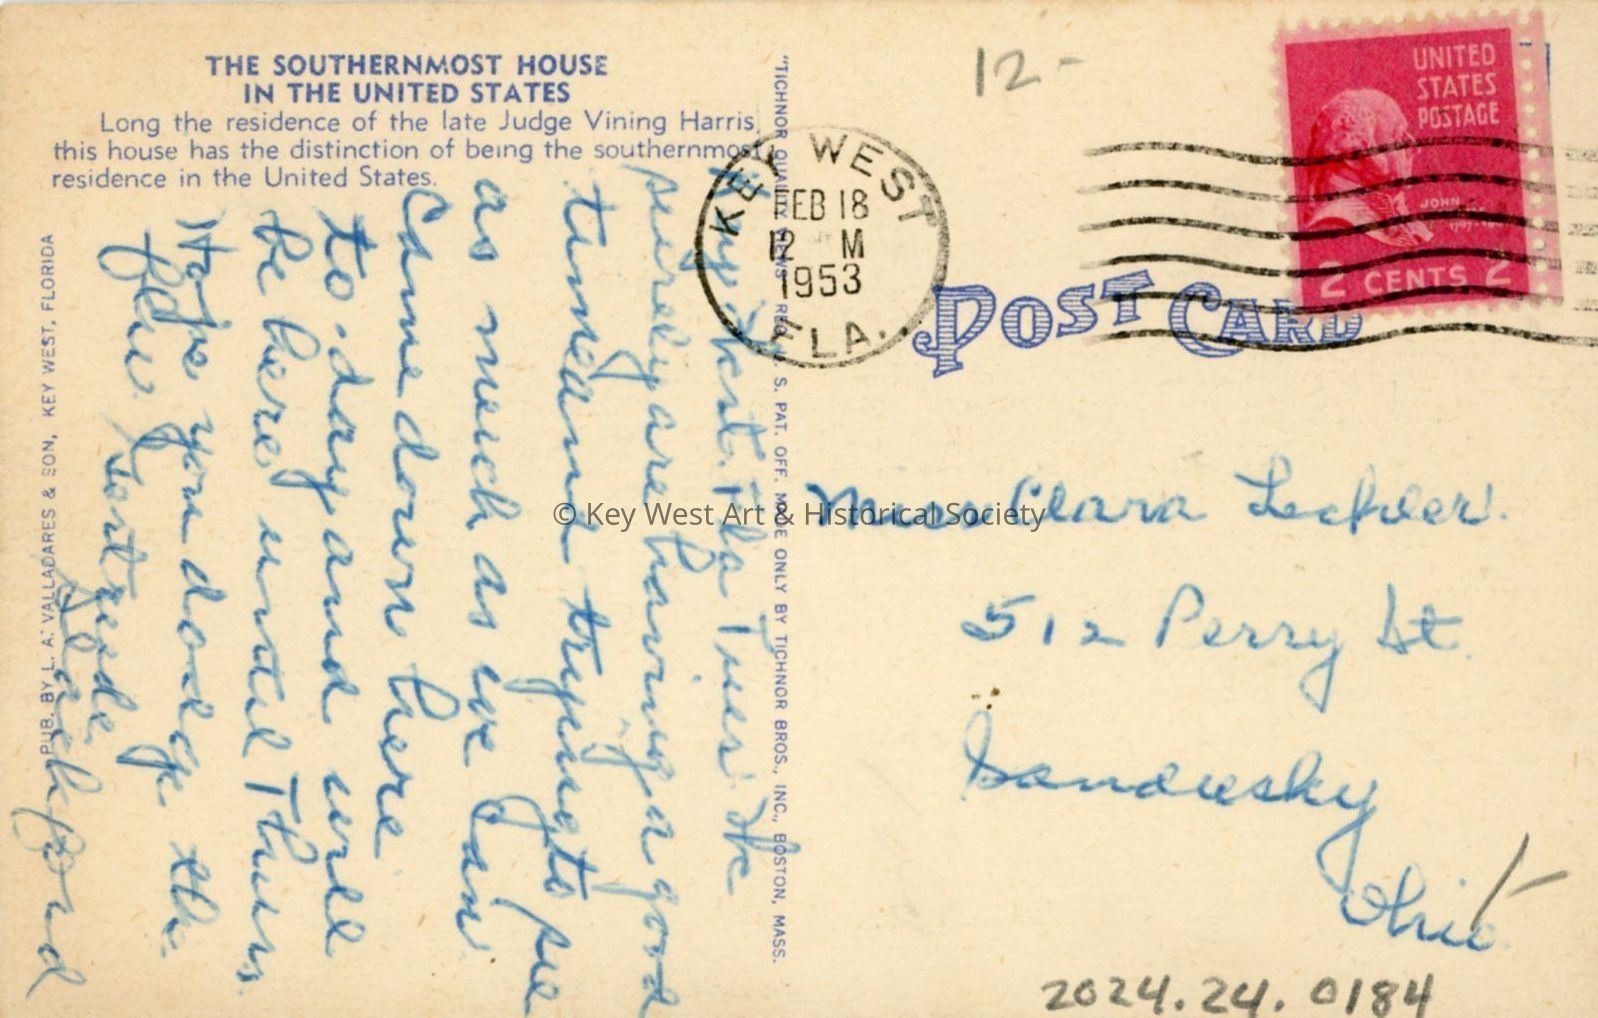 THE SOUTHERNMOST HOUSE
IN THE UNITED STATES
Long the residence of the late Judge Vining Harris,
this house has the distinction of being the southernmost
residence in the United States.
Key West. Fla Tues. We
surely are having a good
time and trying to see
as much as we can
Came down here
to-day and will
be here until Thurs.
Hope you dodge the
flu. Gertrude
PUB. BY L. A. VALLADARES & SON, KEY WEST, FLORIDA
"TICHNOR QUALITY VIEWS" REG. U. S. PAT. OFF. MADE ONLY BY TICHNOR BROS., INC., BOSTON, MASS.
12-
KEY WEST
FEB 18
12 M
1953
FLA.
UNITED
STATES
POSTAGE
JOHN
2 CENTS 2
POST CARD
Miss Clara
512 Perry St.
Sandusky
Ohio
2024.24.0184
© Key West Art & Historical Society